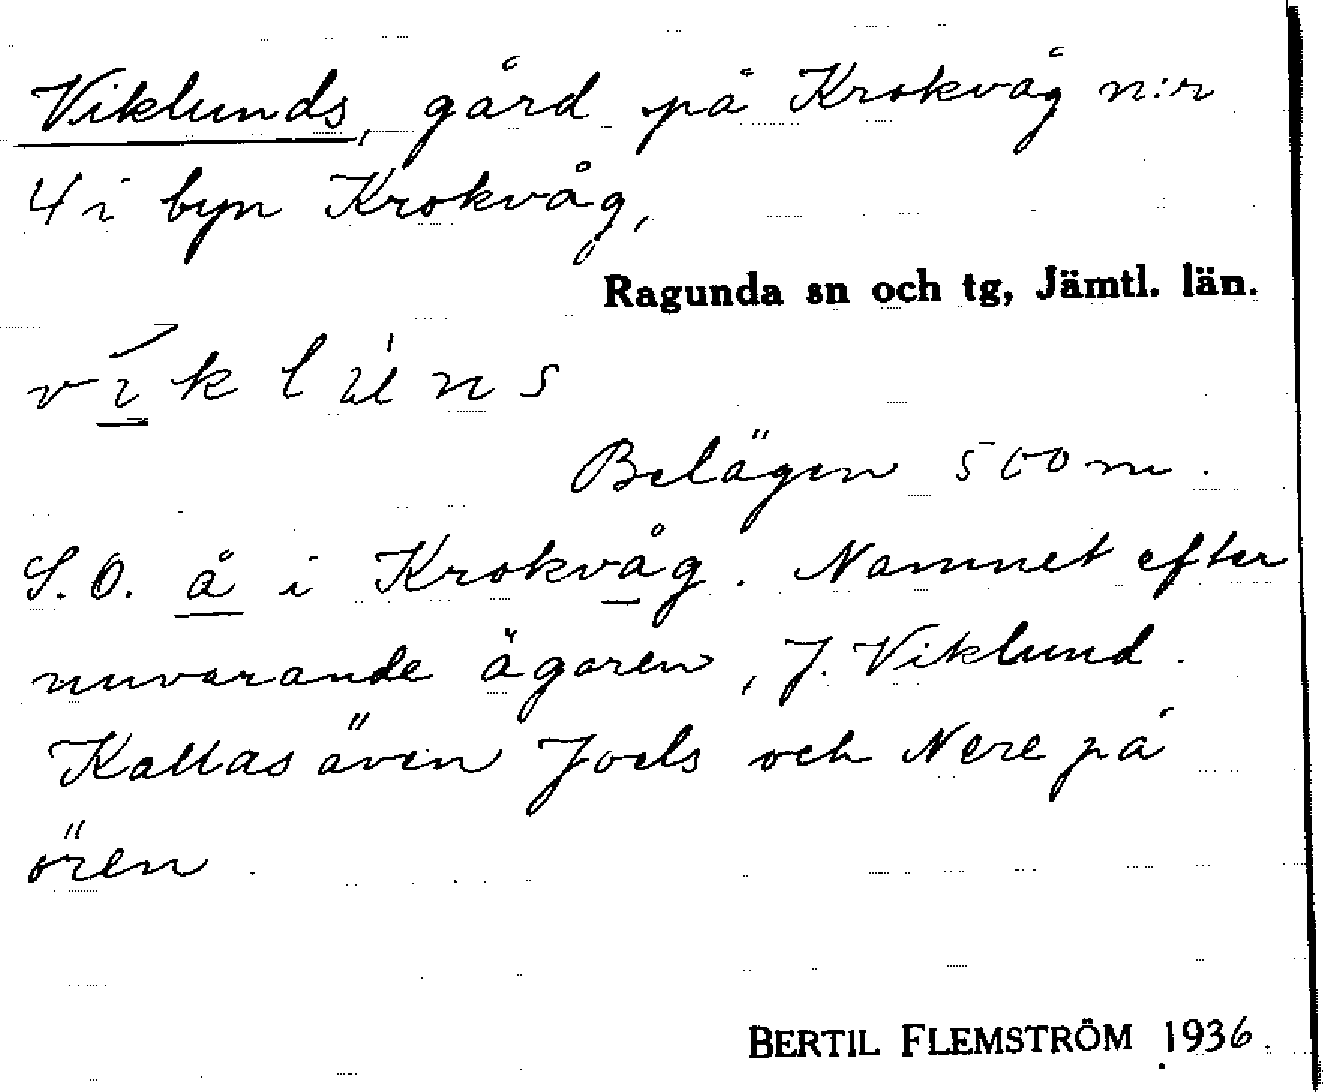 Viklunds, gård på Krokvåg n:r
4 i byn Krokvåg,
Ragunda sn och tg, Jämtl. län.
víklúns
Belägen 500 m.
S.O. å i Krokvåg. Namnet efter
nuvarande ägaren, J. Viklund.
Kallas även Joels och Nere på
ören.
BERTIL FLEMSTRÖM 1936.